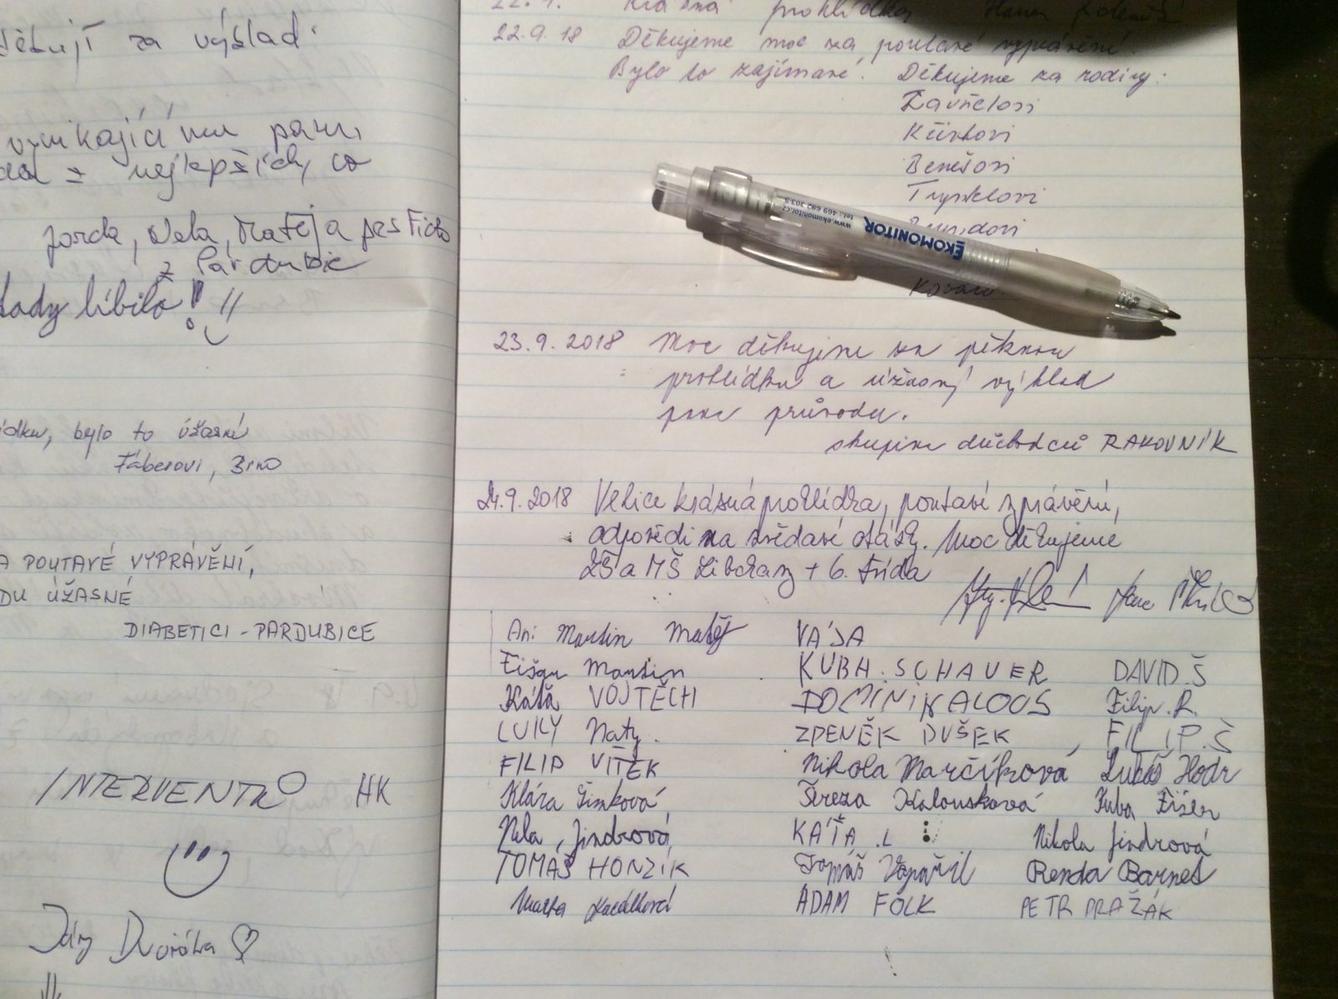 děkují za výklad.
vynikajícímu panu
z nejlepších, co
Jorda, Nela, Matěj a pes Fido
z Pardubic
líbilo!
bylo to úžasné
Fáberovi, Brno
A POUTAVÉ VYPRÁVĚNÍ,
ÚŽASNÉ
DIABETICI - PARDUBICE
INTERVENTRO HK
Dvořáka
22.9.18 Děkujeme moc za poutavé vyprávění.
Bylo to zajímavé. Děkujeme za rodiny:
Benešovi
EKOMONITOR
www.ekomonitor.cz
23.9.2018 Moc děkujeme za pěknou
prohlídku a úžasný výklad
pana průvodce.
skupina důchodců RAKOVNÍK
24.9.2018 Velice krásná prohlídka, poutavé vyprávění,
odpovědi na zvědavé otázky. Moc děkujeme
ZŠ a MŠ Libčany + 6. třída
Martin Matěj VÁŠA
Martin KUBA.SCHAUER DAVID.Š
Káťa VOJTĚCH DOMINIK ALOUS Filip.R
LUKY Naty. ZDENĚK DUŠEK, FILIP.Š
FILIP VÍTEK Nikola Marčíková Lukáš Hodr
Klára Šimková Tereza Kalousková Kuba
Nela Jindrová KÁŤA.L Nikola Jindrová
TOMÁŠ HONZÍK Tomáš Renda Barnet
ADAM FOLK PETR PRAŽÁK